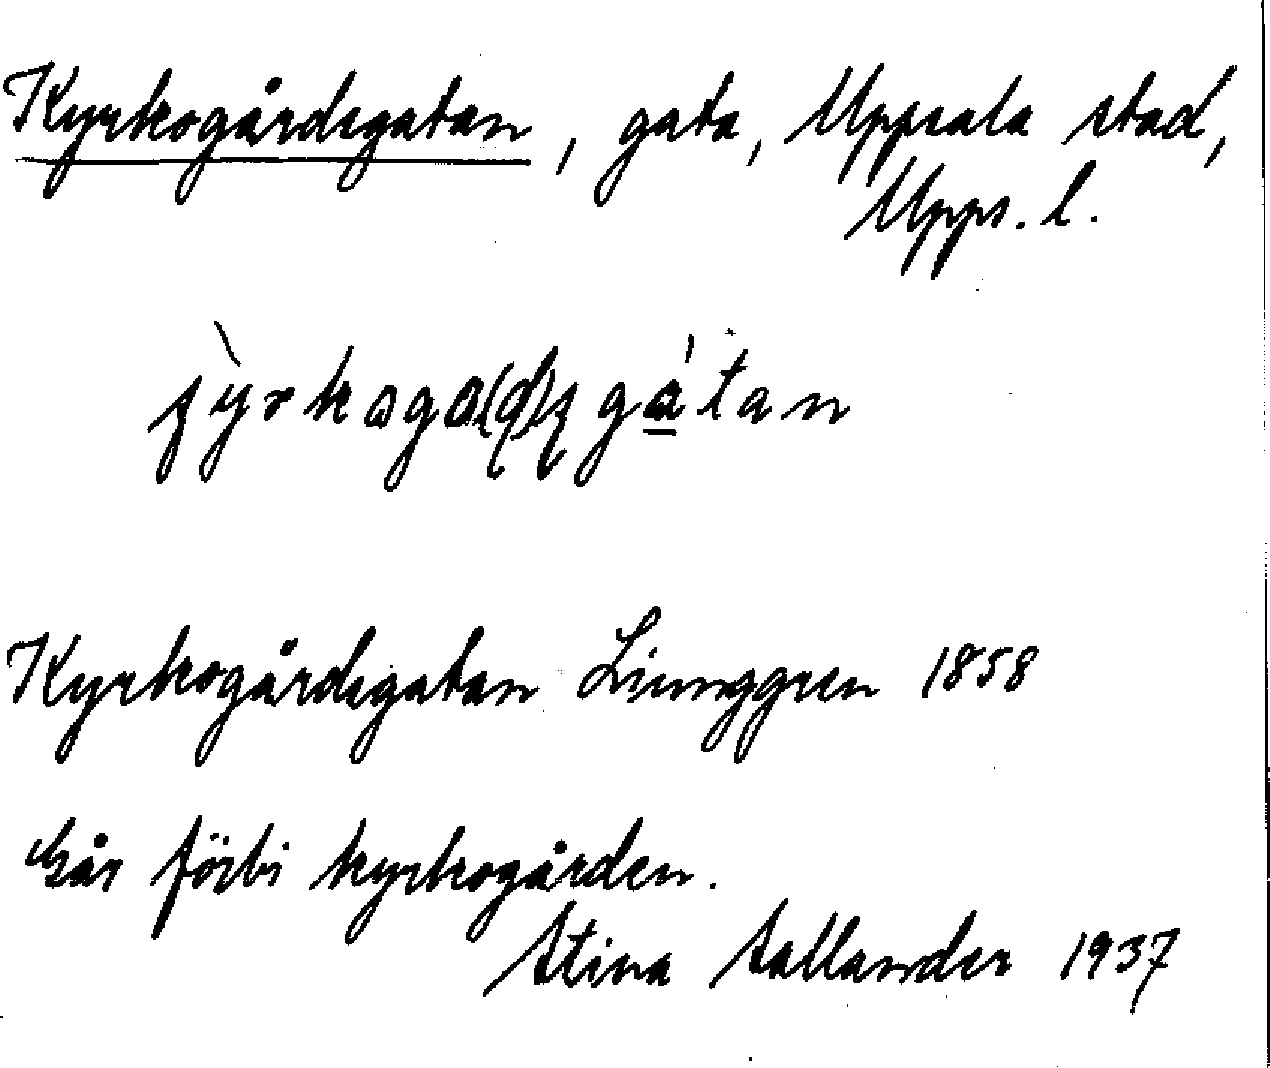 Kyrkogårdsgatan, gata, Uppsala stad,
Upps. l.
Kyrkogårdsgatan Ljunggren 1858
Går förbi kyrkogården.
Stina Sallander 1937